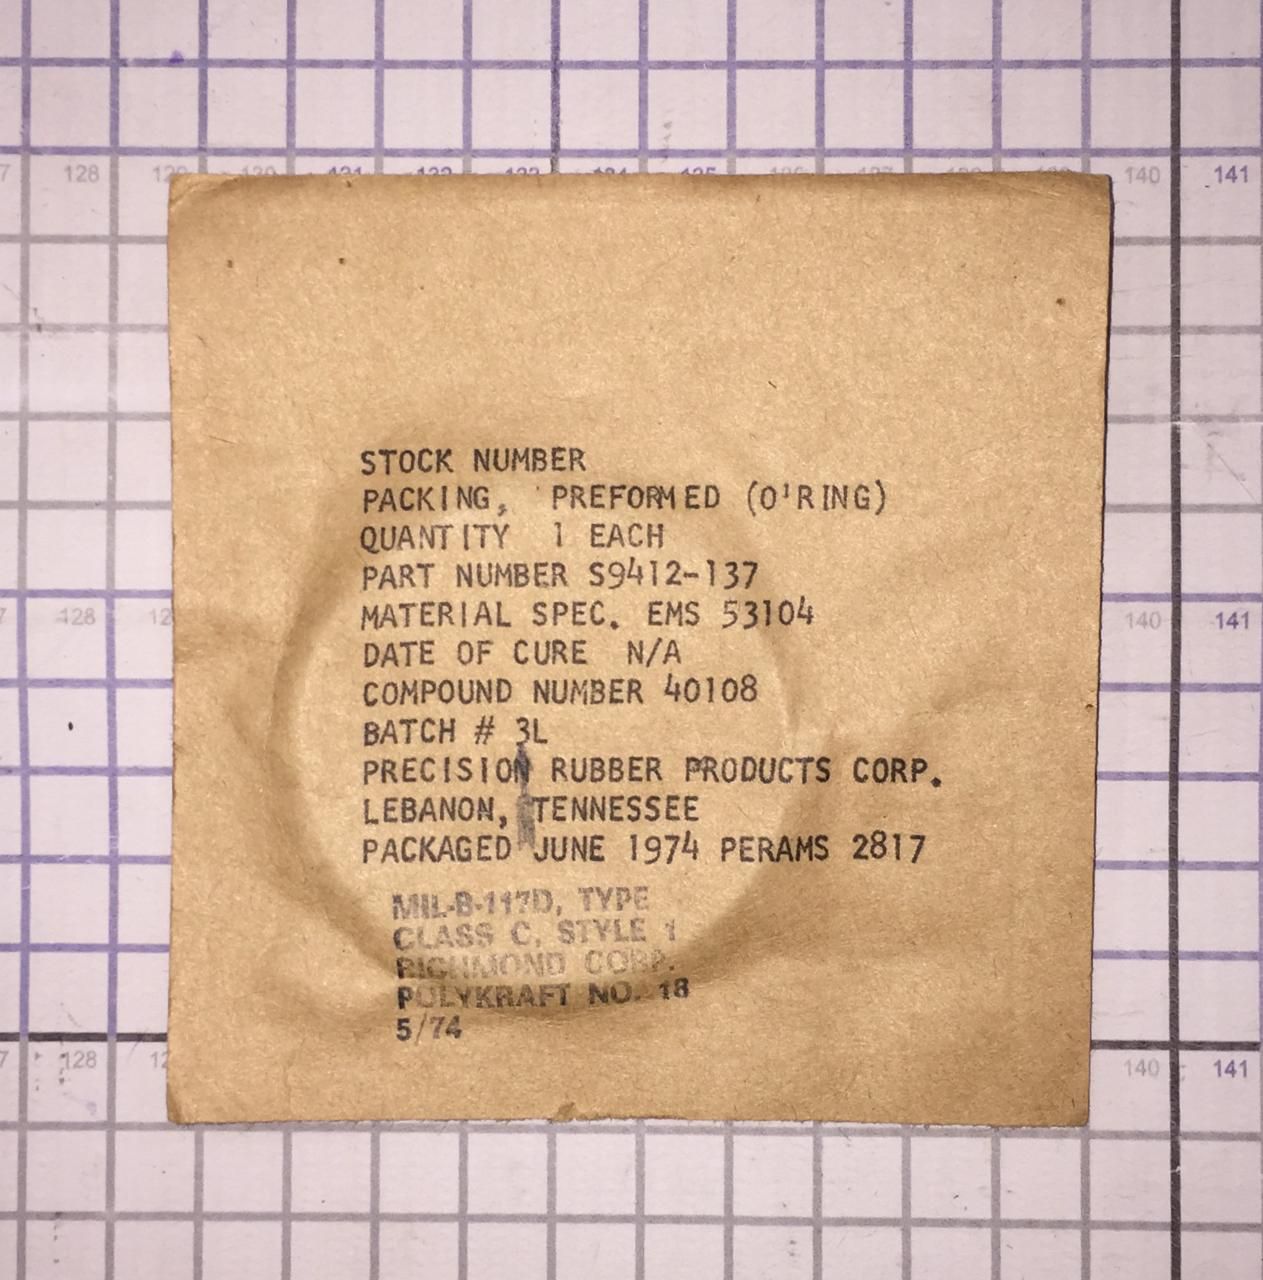 128
140
141
STOCK NUMBER
PACKING, PREFORMED (O'RING)
QUANTITY 1 EACH
PART NUMBER S9412-137
MATERIAL SPEC. EMS 53104
DATE OF CURE N/A
COMPOUND NUMBER 40108
BATCH # 3L
PRECISION RUBBER PRODUCTS CORP.
LEBANON, TENNESSEE
PACKAGED JUNE 1974 PERAMS 2817
MIL-B-117D, TYPE
CLASS C, STYLE 1
RICHMOND CORP.
POLYKRAFT NO. 18
5/74
128
140
141
128
140
141